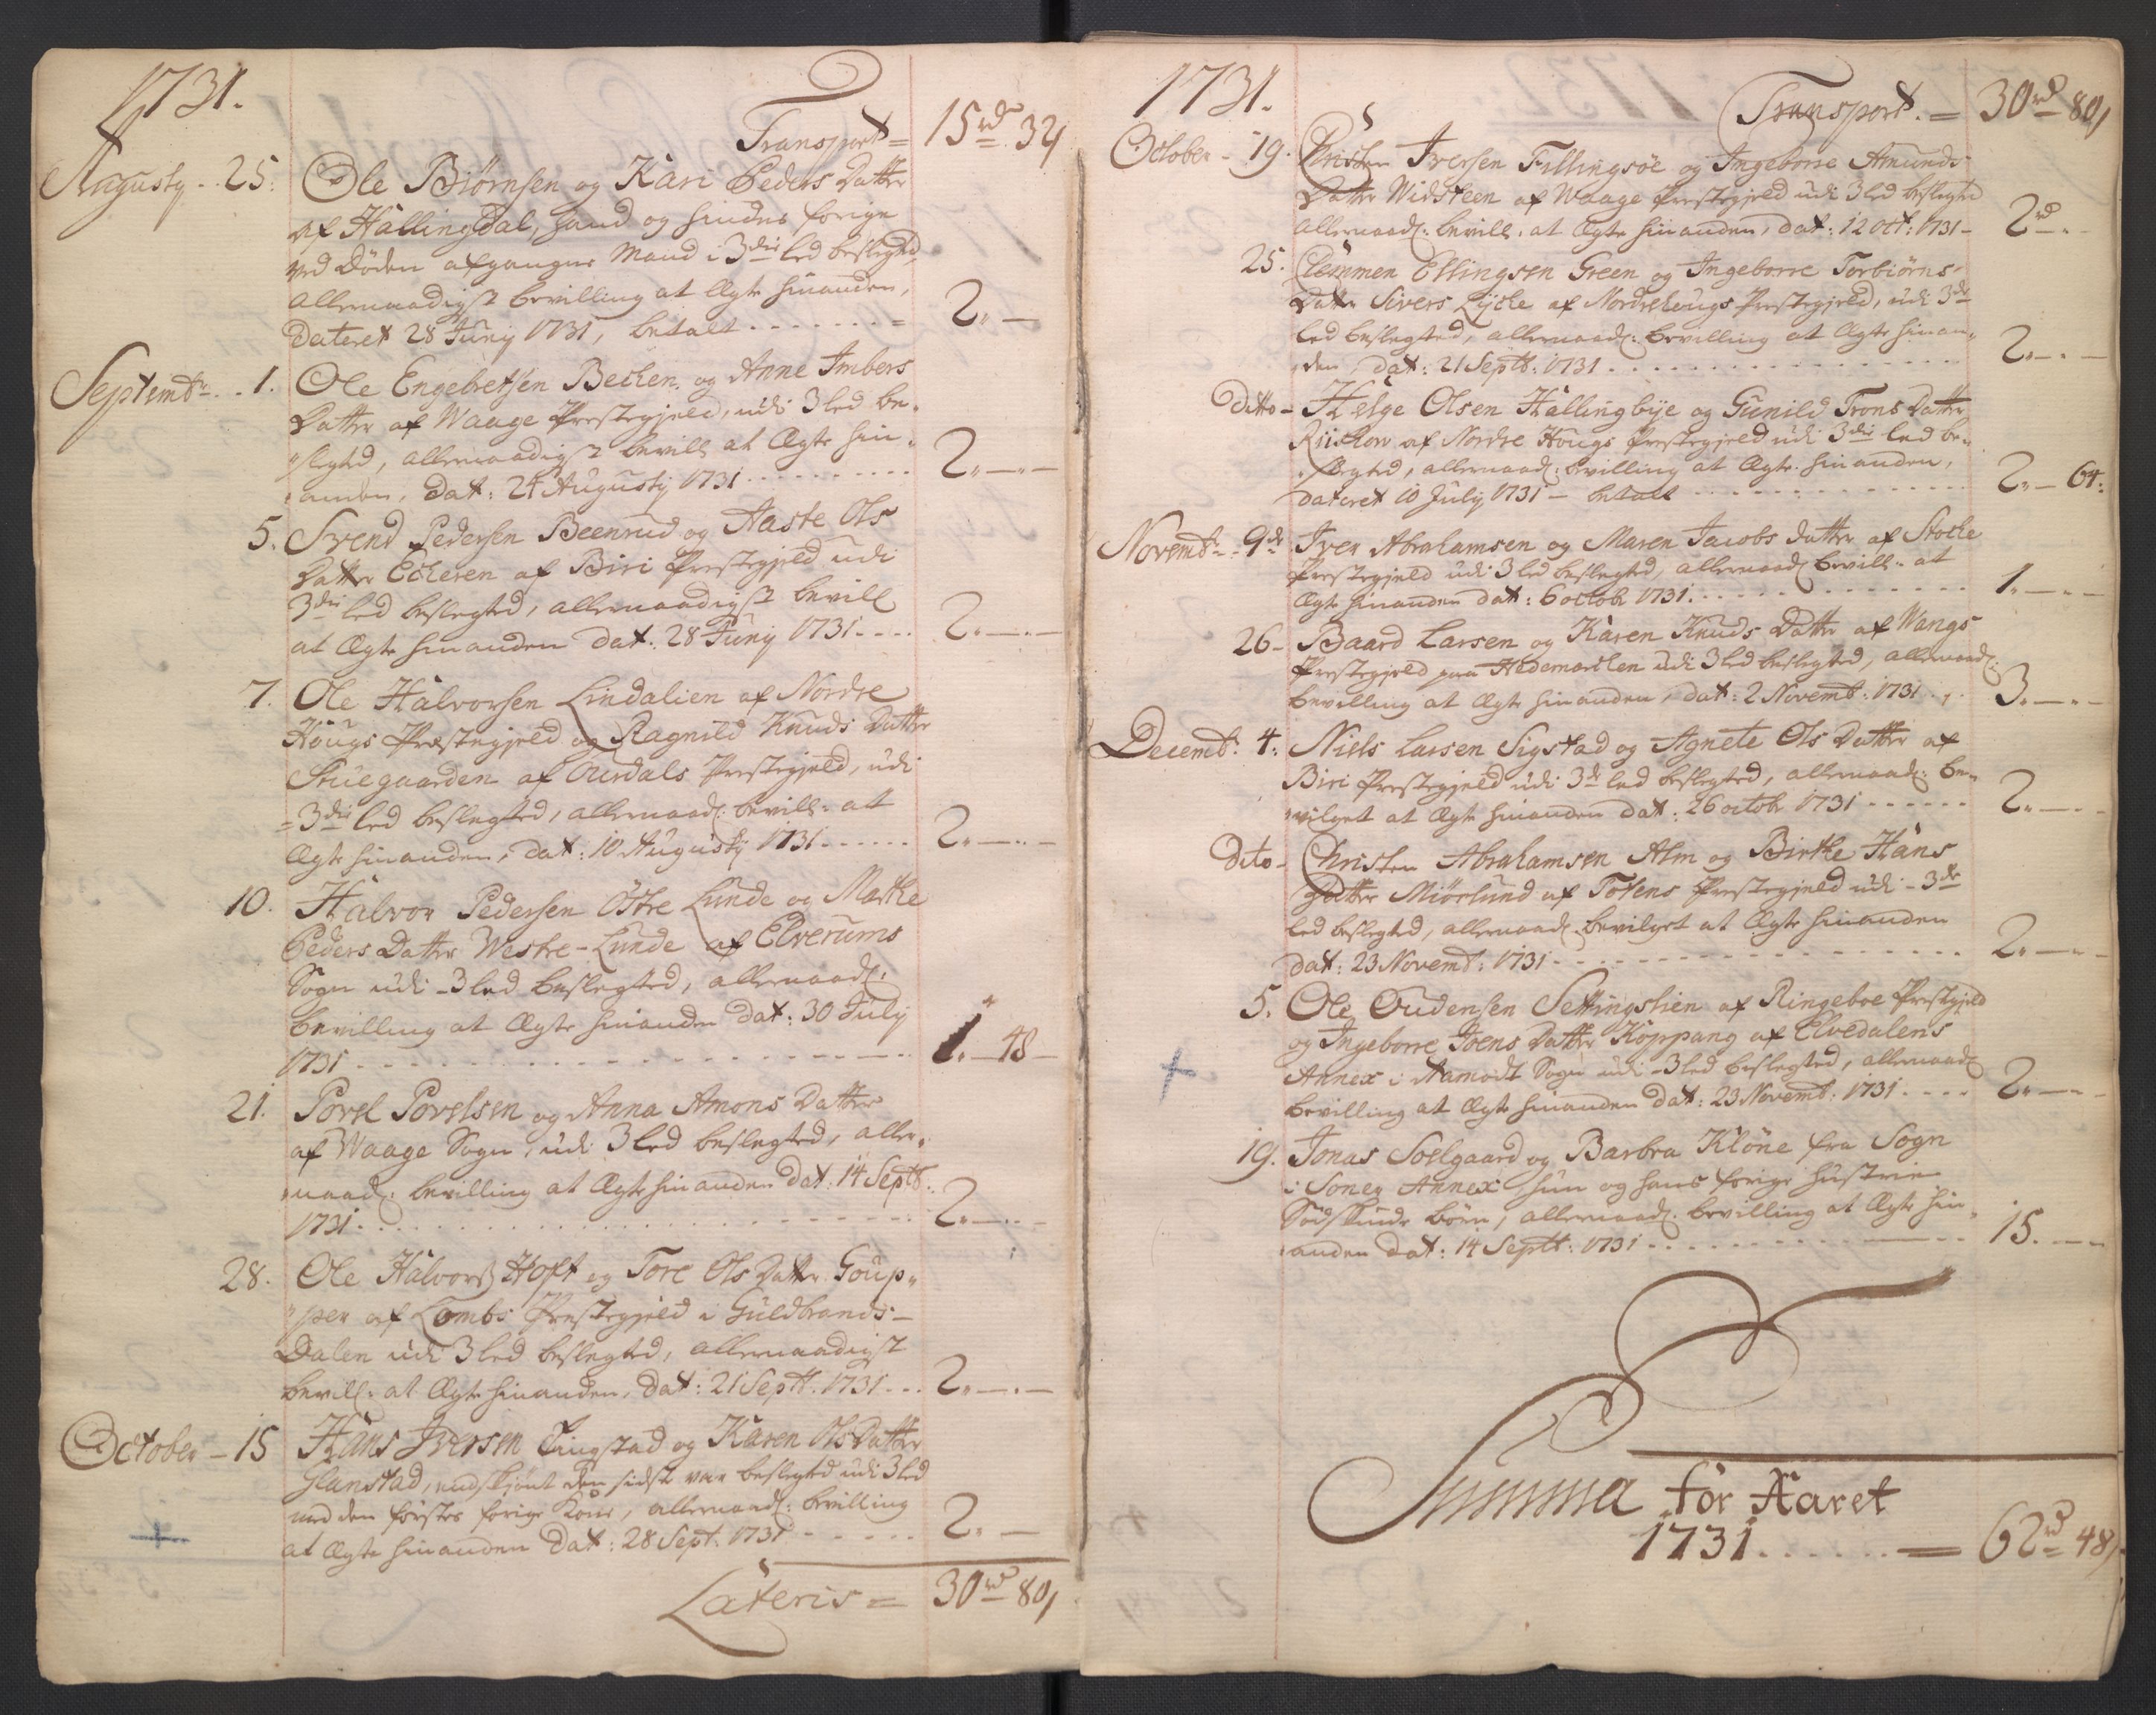 1731.
Transport = 15 rd 32,
Augusty - 25. Ole Biørnsen og Kari Peders Datter
af Hallingdal, hand og hindes forige
ved Døden afgangne Mand i 3die led beslegted
allernaadigst bevilling at Ægte hinanden,
Dateret 28 Juny 1731, betalt - - - - - = 2. —
Septembr. - 1. Ole Engebretsen Becken og Anne Imbers
Datter af Waage Prestegjeld, udi 3 led be-
slegted, allernaadigst bevill at Ægte hin-
anden, Dat: 24 Augusty 1731 - - - - 2. — . —
5. Svend Pedersen Beenrud og Aaste Ols
Datter Eckeren af Biri Prestegjeld udi
3die led beslegted, allernaadigst bevill
at Ægte hinanden Dat: 28 Juny 1731 - - - 2. — . —
7. Ole Halvorsen Lindalien af Nordre
Hougs Præstegjeld og Ragnild Knuds Datter
Stuegaarden af Ourdals Prestegjeld, udi
3die led beslegted, allernaad: bevill: at
Ægte hinanden, Dat: 10 Augusty 1731 - - - 2. — . —
10. Halvor Pedersen Östre Lunde og Marthe
Peders Datter Westre-Lunde af Elverums
Sogn udi 3 led beslegted, allernaad:
bevilling at Ægte hinanden Dat: 30 July
1731 - - - - - - 1. — 48 —
21. Povel Povelsen og Anna Amons Datter
af Waage Sogn, udi 3 led beslegted, aller-
naad: bevilling at Ægte hinanden Dat: 14 Septb.
1731 - - - - - - 2. — . —
28. Ole Halvors Hoft og Tore Ols Datter Goup-
per af Lombs Prestegjeld i Guldbrands-
Dalen udi 3 led beslegted, allernaadigst
bevill: at Ægte hinanden, Dat: 21 Septt. 1731 - - - 2. — . —
October - 15 Hans Iversen Tingstad og Karen Ols Datter
Glanstad, endskjönt den sidste var beslegted udi 3 led
med den förstes forige Kone, allernaad: bevilling
at Ægte hinanden Dat: 28 Sept. 1731 - - - 2. —
Lateris = 30 rd 80,
1731.
Transport. = 30 rd 80,
October - 19. Christen Iversen Fillingsöe og Ingeborre Amunds
Datter Widsteen af Waage Prestegjeld udi 3 led beslegted
allernaad: bevill: at Ægte hinanden, Dat: 12 Oct: 1731 - 2 rd - . -
25. Clemmen Ellingsen Green og Ingeborre Torbiörns-
Datter Sivers Lycke af Nordrehougs Prestegjeld, udi 3de
led beslegted, allernaad: bevilling at Ægte hinan-
den, Dat: 21 Septb: 1731 - - - - 2. — . —
Ditto - Helge Olsen Hallingbye og Gunild Trons Datter
af Nordre Hougs Prestegjeld udi 3die led be-
slegted, allernaad: bevilling at Ægte hinanden,
Dateret 10 July 1731 - betalt - - - - 2. — 64.
Novembr. - 9de Iver Abrahamsen og Maren Jacobs Datter af Stocke
Prestegjeld udi 3 led beslegted, allernaad bevill: at
Ægte hinanden Dat: 6 octob 1731. - - - - 1. — . —
26 - Baard Larsen og Karen Knuds Datter af Wangs
Prestegjeld paa Hedemarcken udi 3 led beslegted, allernaad:
bevilling at Ægte hinanden, Dat: 2 Novemb: 1731. - 3. — . —
Decemb: 4. Niels Larsen Sigstad og Agnete Ols Datter af
Biri Prestegjeld udi 3de led beslegted, allernaad: be-
vilget at Ægte hinanden Dat: 26 octobr 1731 - - - 2. — . —
Dito - Christen Abrahamsen Alm og Birthe Hans
Datter Miörlund af Totens Prestegjeld udi - 3de
led beslegted, allernaad: bevilget at Ægte hinanden
Dat: 23 Novemb: 1731 - - - - 2. — . —
5. Ole Oudensen Settingslien af Ringeboe Prestgjeld
og Ingeborre Joens Datter Koppang af Elvedalens
Annex i Aamodt Sogn udi - 3 led beslegted, allernaad
bevilling at Ægte hinanden Dat: 23 Novemb: 1731 - - - 2. — . —
19. Jonas Soelgaard og Barbra Klöne fra Sogn
i Soner Annex, hun og hans forige Hustrue
Södskinde börn, allernaad: bevilling at Ægte hin-
anden Dat: 14 Septt: 1731 - - - - 15. — . —
Summa for Aaret
1731. - - - = 62 rd 48,